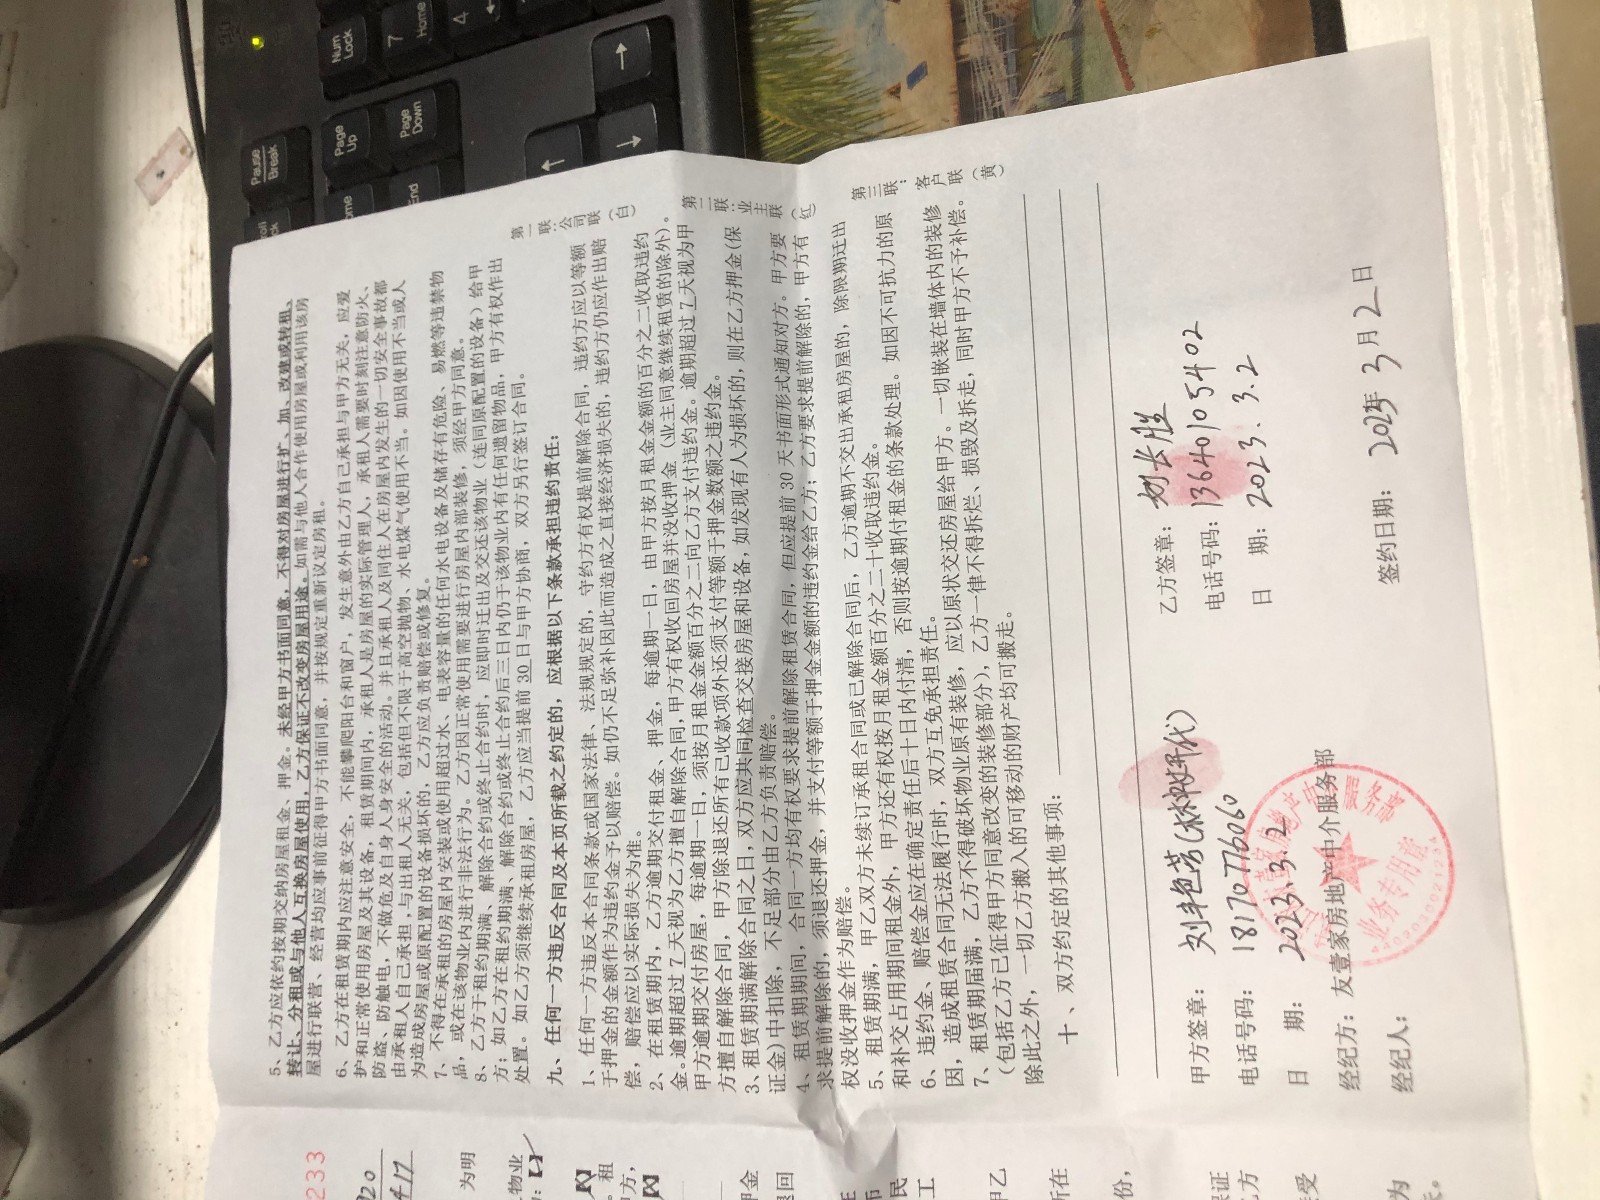 5、乙方应依约按期交纳房屋租金、押金。未经甲方书面同意，不得对房屋进行扩、加、改建或转租、
转让、分租或与他人互换房屋使用，乙方保证不改变房屋用途。如需与他人合作使用房屋或利用该房
屋进行联营、经营均应事前征得甲方书面同意，并按规定重新议定房租。
6、乙方在租赁期内应注意安全，不能攀爬阳台和窗户，发生意外由乙方自己承担与甲方无关，应爱
护和正常使用房屋及其设备，租赁期间内，承租人是房屋的实际管理人，承租人需要时刻注意防火、
防盗、防触电，不做危及自身人身安全的活动。并且承租人及同住人在房屋内发生的一切安全事故都
由承租人自己承担，与出租人无关，包括但不限于高空抛物、水电煤气使用不当。如因使用不当或人
为造成房屋或原配置的设备损坏的，乙方应负责赔偿或修复。
7、不得在承租的房屋内安装或使用超过水、电表容量的任何水电设备及储存有危险、易燃等违禁物
品，或在该物业内进行非法行为。乙方因正常使用需要进行房屋内部装修，须经甲方同意。
8、乙方于租约期满、解除合约或终止合约时，应即时迁出及交还该物业（连同原配置的设备）给甲
方；如乙方在租约期满、解除合约或终止合约后三日内仍于该物业内有任何遗留物品，甲方有权作出
处置。如乙方须继续承租房屋，乙方应当提前30日与甲方协商，双方另行签订合同。
九、任何一方违反合同及本页所载之约定的，应根据以下条款承担违约责任：
1、任何一方违反本合同条款或国家法律、法规规定的，守约方有权提前解除合同，违约方应以等额
于押金的金额作为违约金予以赔偿。如仍不足弥补因此而造成之直接经济损失的，违约方仍应作出赔
偿，赔偿应以实际损失为准。
2、在租赁期内，乙方逾期交付租金、押金，每逾期一日，由甲方按月租金金额的百分之二收取违约
金。逾期超过7天视为乙方擅自解除合同，甲方有权收回房屋并没收押金（业主同意继续租赁的除外）。
甲方逾期交付房屋，每逾期一日，须按月租金金额百分之二向乙方支付违约金。逾期超过7天视为甲
方擅自解除合同，甲方除退还所有己收款项外还须支付等额于押金数额之违约金。
3、租赁期满解除合同之日，双方应共同检查交接房屋和设备，如发现有人为损坏的，则在乙方押金（保
证金）中扣除，不足部分由乙方负责赔偿。
4、租赁期期间，合同一方均有权要求提前解除租赁合同，但应提前30天书面形式通知对方。甲方要
求提前解除的，须退还押金，并支付等额于押金金额的违约金给乙方；乙方要求提前解除的，甲方有
权没收押金作为赔偿。
5、租赁期满，甲乙双方未续订承租合同或已解除合同后，乙方逾期不交出承租房屋的，除限期迁出
和补交占用期间租金外，甲方还有权按月租金额百分之二十收取违约金。
6、违约金、赔偿金应在确定责任后十日内付清，否则按逾期付租金的条款处理。如因不可抗力的原
因，造成租赁合同无法履行时，双方互免承担责任。
7、租赁期届满，乙方不得破坏物业原有装修，应以原状交还房屋给甲方。一切嵌装在墙体内的装修
（包括乙方已征得甲方同意改变的装修部分），乙方一律不得拆烂、损毁及拆走，同时甲方不予补偿。
除此之外，一切乙方搬入的可移动的财产均可搬走。
十、双方约定的其他事项：
第一联：公司联（白）
第二联：业主联（红）
第三联：客户联（黄）
甲方签章：刘艳芳
乙方签章：刘长胜
电话号码：18170776060
电话号码：13640105402
日 期：2023.3.2
日 期：2023.3.2
经纪方：友壹家房地产中介服务部
签约日期：2023年3月2日
经纪人：
业务专用章
233
417
为明
Num Lock
7 Home
4
Pause Break
Page Up
Page Down
End